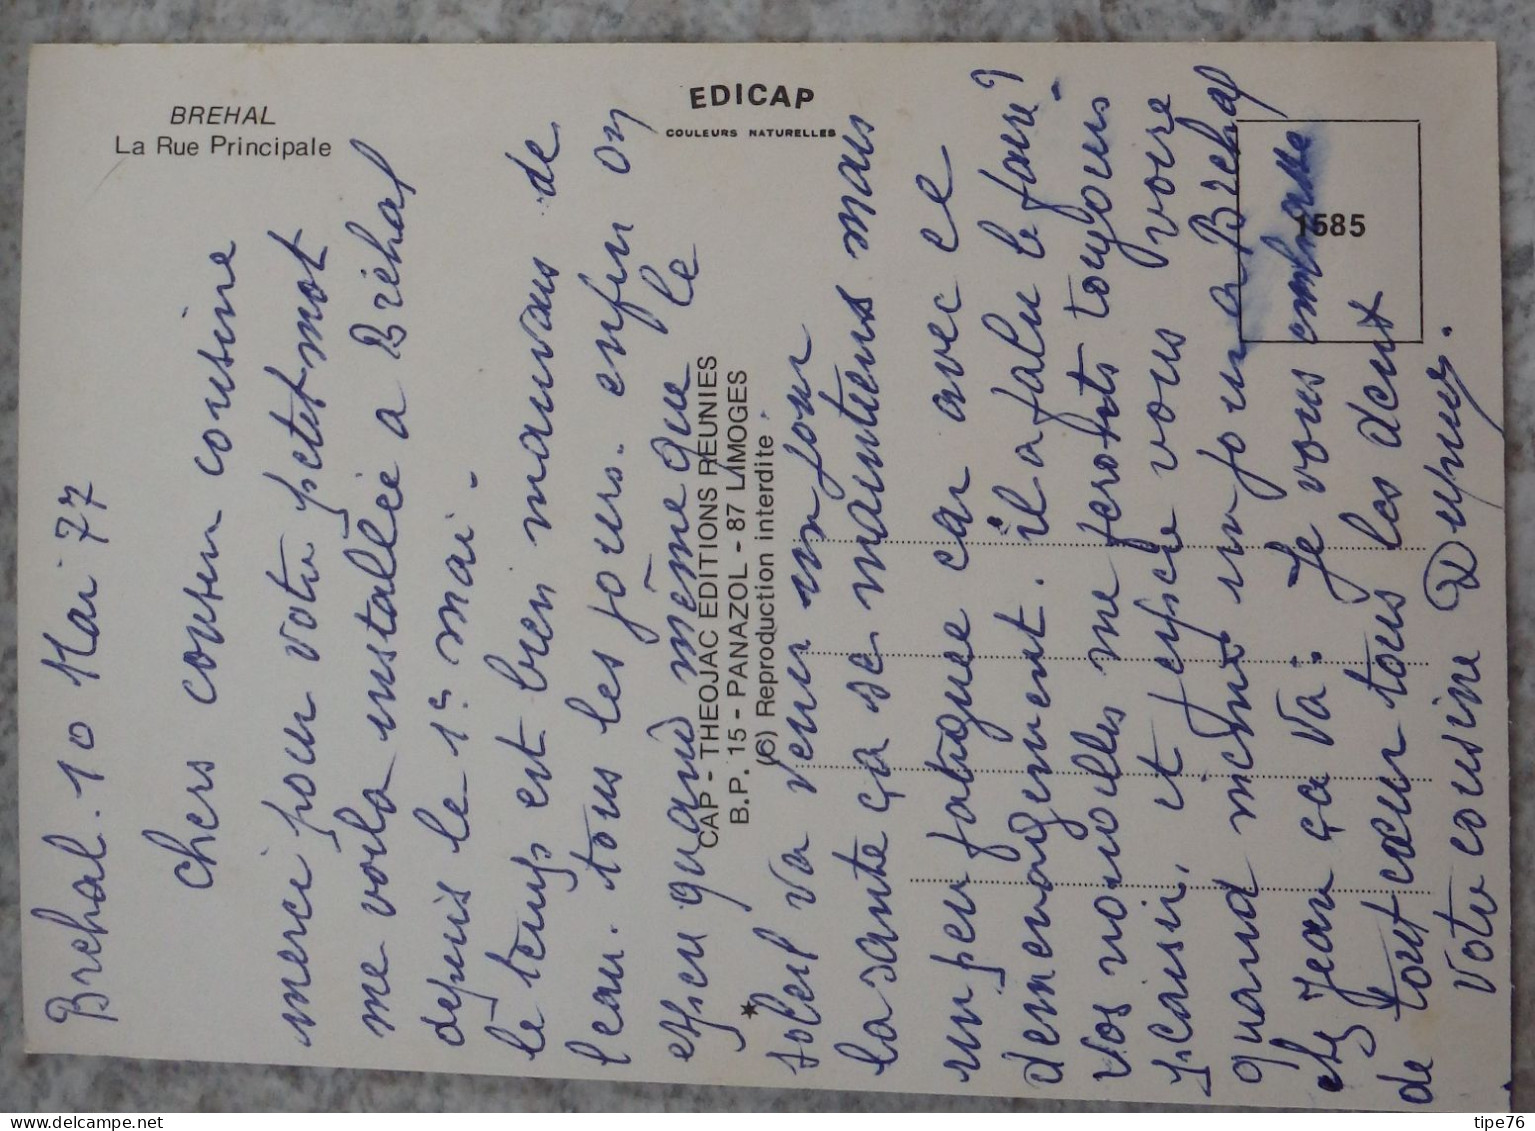 BREHAL
La Rue Principale
EDICAP
COULEURS NATURELLES
1585
CAP - THEOJAC EDITIONS REUNIES
B.P. 15 - PANAZOL - 87 LIMOGES
(C) Reproduction interdite
*
Brehal. 10 Mai 77
Chers cousin cousine
merci pour votre petit mot
me voila installée a Bréhal
depuis le 1er mai.
le temps est bien mauvais de
l'eau. tous les jours. enfin on
espieu quand même que le
soleil va venir un jour
la sante ça se maintiens mais
un peu fatiguee car avec ce
demenagement. il a falu le faire?
vos nouvelles me feronts toujours
plaisir, et espere vous voire
quand même un jour a Brehal
chez Jean ça va. Je vous embrasse
de tout cœur tous les deux
Votre cousine Dupuy.
© delcampe.net
tipe76